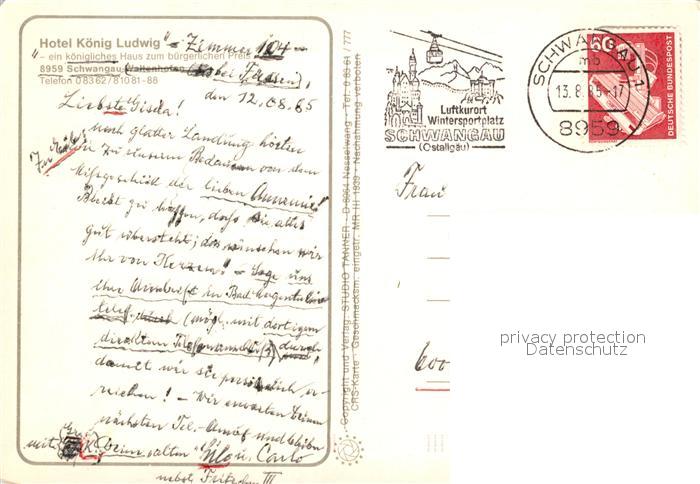 Hotel König Ludwig" - Zimmer 104 -
"- ein königliches Haus zum bürgerlichen Preis -
8959 Schwangau, (bei Füssen),
Telefon 08362/81081-88
den 12.08.85
Liebste Gisela!
nach glatter Landung hörten
wir zu unserem Bedauern von dem
Mißgeschick der lieben Annemie!
Bleibt zu hoffen, daß sie alles
gut übersteht; das wünschen wir
ihr von Herzen! - Sage uns
ihre Anschrift in Bad
telef. (mögl. mit dortigem
direkten) durch,
damit wir sie persönlich er-
reichen! - Wir erwarten Deinen
nächsten Tel.-Anruf und bleiben
mit
Deine alten u. Carlo
nebst III
Copyright und Verlag: STUDIO TANNER · D-8964 Nesselwang · Tel. 0 83 61 / 777
CRS-Karte · Geschmacksm. eingetr. MR III 1939 · Nachahmung verboten
Luftkurort
Wintersportplatz
SCHWANGAU
(Ostallgäu)
SCHWANGAU 1
mb
13.8.85-17
8959
60
DEUTSCHE BUNDESPOST
Frau
600
privacy protection
Datenschutz